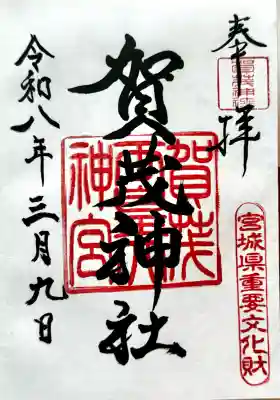 奉拝
賀茂神社
宮城県重要文化財
賀茂
神宮
令和八年三月九日